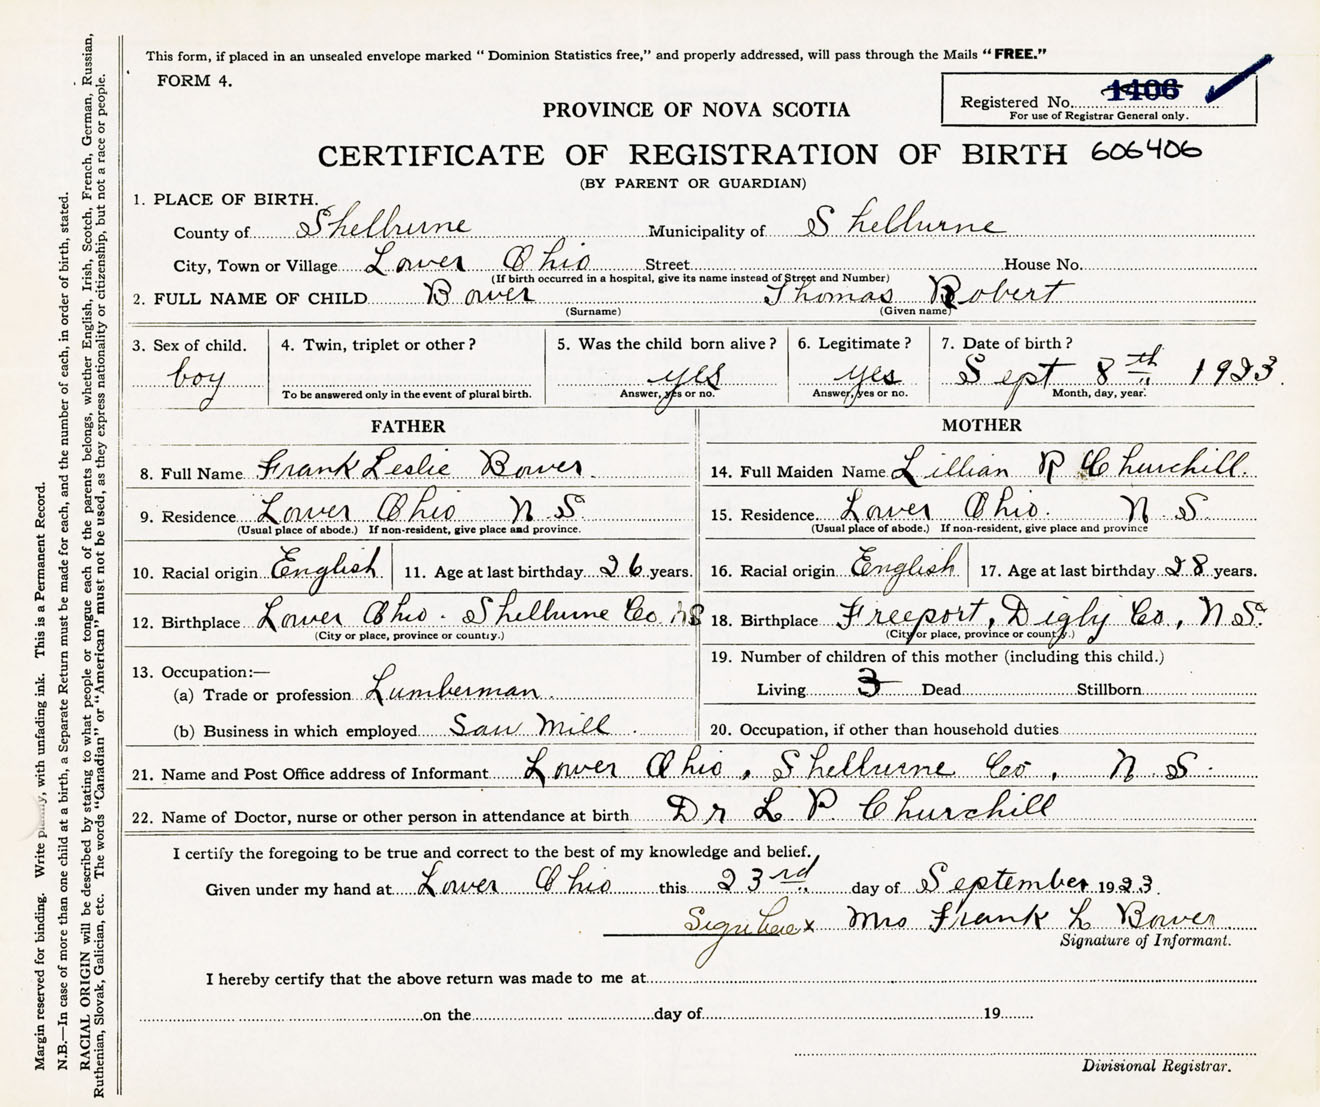 This form, if placed in an unsealed envelope marked " Dominion Statistics free," and properly addressed, will pass through the Mails "FREE."
FORM 4.
Registered No. 1406
For use of Registrar General only.
PROVINCE OF NOVA SCOTIA
CERTIFICATE OF REGISTRATION OF BIRTH 606406
(BY PARENT OR GUARDIAN)
1. PLACE OF BIRTH.
County of Shelburne Municipality of Shelburne
City, Town or Village Lower Ohio Street House No.
(If birth occurred in a hospital, give its name instead of Street and Number)
2. FULL NAME OF CHILD Bower Thomas Robert
(Surname) (Given name)
3. Sex of child. 4. Twin, triplet or other? 5. Was the child born alive? 6. Legitimate? 7. Date of birth?
boy yes yes Sept 8th 1923
To be answered only in the event of plural birth. Answer, yes or no. Answer, yes or no. Month, day, year.
FATHER MOTHER
8. Full Name Frank Leslie Bower 14. Full Maiden Name Lillian R Churchill
9. Residence Lower Ohio N S 15. Residence Lower Ohio. N. S.
(Usual place of abode.) If non-resident, give place and province. (Usual place of abode.) If non-resident, give place and province
10. Racial origin English 11. Age at last birthday 26 years. 16. Racial origin English 17. Age at last birthday 28 years.
12. Birthplace Lower Ohio. Shelburne Co NS 18. Birthplace Freeport, Digby Co, N S.
(City or place, province or county.) (City or place, province or county.)
19. Number of children of this mother (including this child.)
13. Occupation:—
(a) Trade or profession Lumberman Living 3 Dead Stillborn
(b) Business in which employed Saw Mill 20. Occupation, if other than household duties
21. Name and Post Office address of Informant Lower Ohio, Shelburne Co, N. S.
22. Name of Doctor, nurse or other person in attendance at birth Dr L P. Churchill
I certify the foregoing to be true and correct to the best of my knowledge and belief.
Given under my hand at Lower Ohio this 23rd day of September 1923.
Sign here x Mrs Frank L Bower
Signature of Informant.
I hereby certify that the above return was made to me at
on the day of 19
Divisional Registrar.
Margin reserved for binding. Write plainly, with unfading ink. This is a Permanent Record.
N.B.—In case of more than one child at a birth, a Separate Return must be made for each, and the number of each, in order of birth, stated.
RACIAL ORIGIN will be described by stating to what people or tongue each of the parents belongs, whether English, Irish, Scotch, French, German, Russian,
Ruthenian, Slovak, Galician, etc. The words "Canadian" or "American" must not be used, as they express nationality or citizenship, but not a race or people.